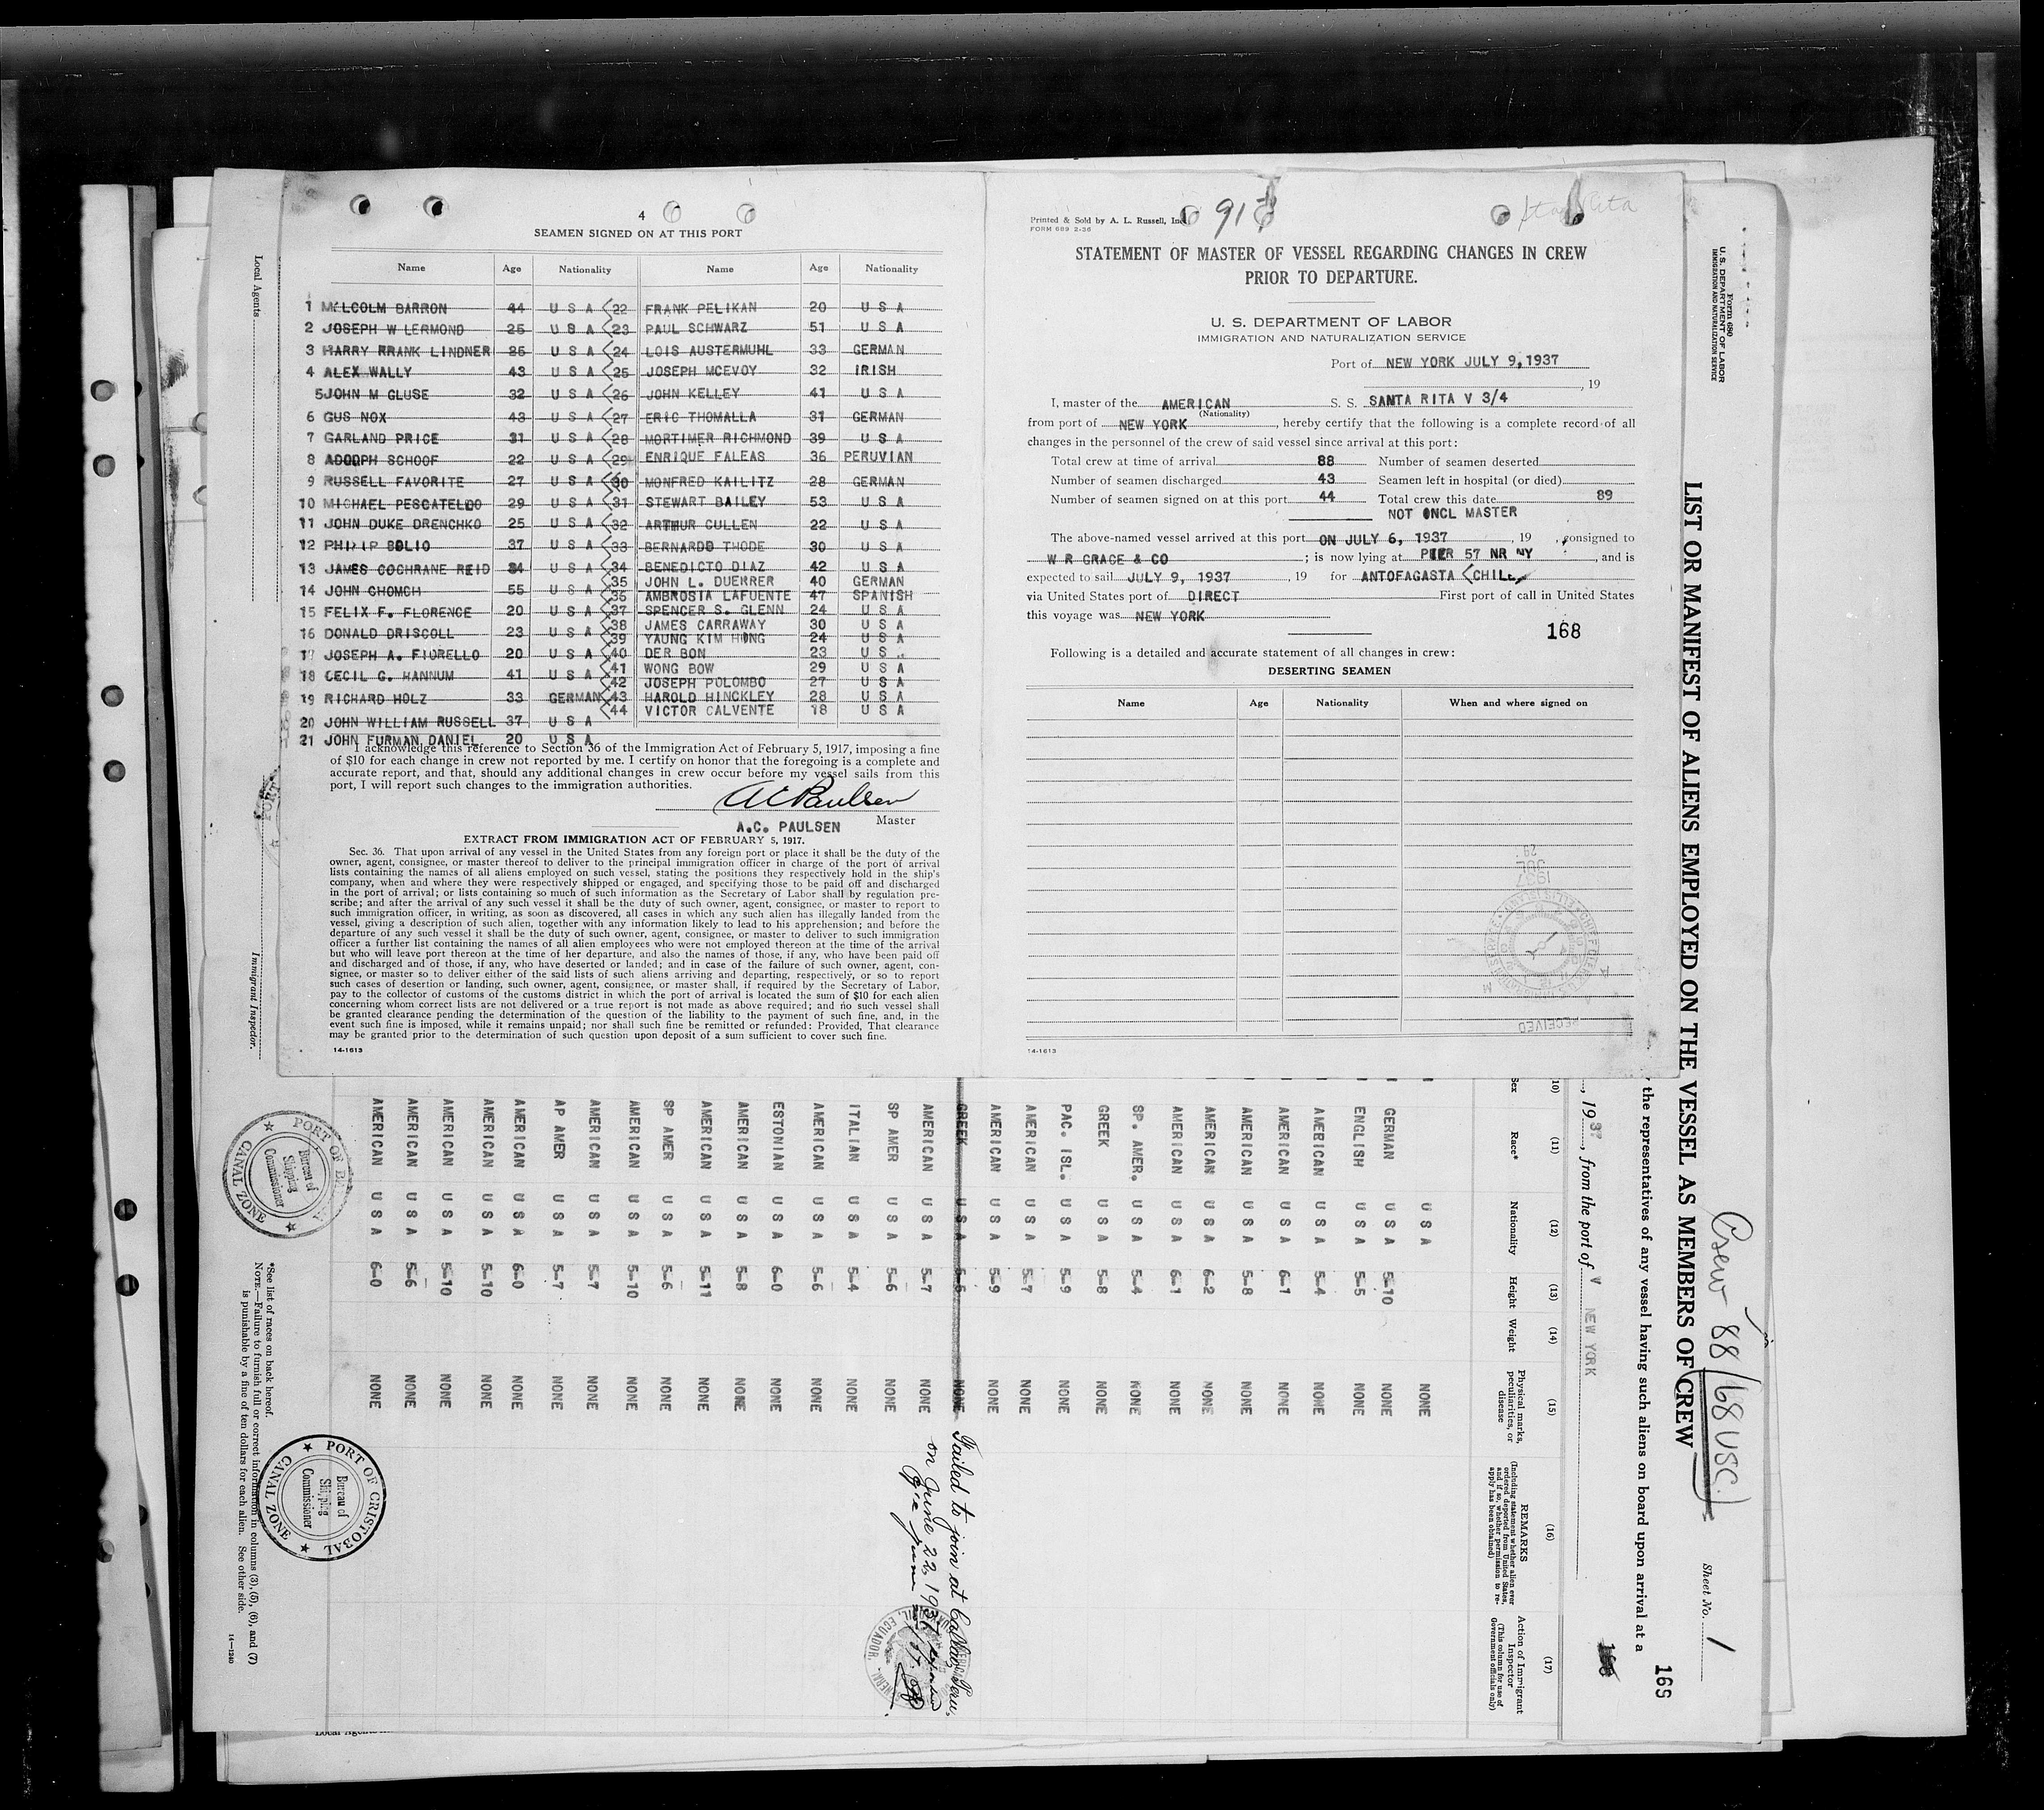 4
SEAMEN SIGNED ON AT THIS PORT
Name Age Nationality Name Age Nationality
1 MALCOLM BARRON 44 U S A 22 FRANK PELIKAN 20 U S A
2 JOSEPH W LERMOND 25 U S A 23 PAUL SCHWARZ 51 U S A
3 HARRY FRANK LINDNER 25 U S A 24 LOIS AUSTERMUHL 33 GERMAN
4 ALEX WALLY 43 U S A 25 JOSEPH MCEVOY 32 IRISH
5 JOHN M GLUSE 32 U S A 26 JOHN KELLEY 41 U S A
6 GUS NOX 43 U S A 27 ERIC THOMALLA 31 GERMAN
7 GARLAND PRICE 31 U S A 28 MORTIMER RICHMOND 39 U S A
8 ADODPH SCHOOF 22 U S A 29 ENRIQUE FALEAS 36 PERUVIAN
9 RUSSELL FAVORITE 27 U S A 30 MONFRED KAILITZ 28 GERMAN
10 MICHAEL PESCATELDO 29 U S A 31 STEWART BAILEY 53 U S A
11 JOHN DUKE DRENCHKO 25 U S A 32 ARTHUR CULLEN 22 U S A
12 PHILIP BOLIO 37 U S A 33 BERNARDO THODE 30 U S A
13 JAMES COCHRANE REID 34 U S A 34 BENEDICTO DIAZ 42 U S A
35 JOHN L. DUERRER 40 GERMAN
14 JOHN CHOMCH 55 U S A 36 AMBROSIA LAFUENTE 47 SPANISH
15 FELIX F. FLORENCE 20 U S A 37 SPENCER S. GLENN 24 U S A
38 JAMES CARRAWAY 30 U S A
16 DONALD DRISCOLL 23 U S A 39 YAUNG KIM HONG 24 U S A
17 JOSEPH A. FIORELLO 20 U S A 40 DER BON 23 U S
41 WONG BOW 29 U S A
18 CECIL G. HANNUM 41 U S A 42 JOSEPH POLOMBO 27 U S A
19 RICHARD HOLZ 33 GERMAN 43 HAROLD HINCKLEY 28 U S A
44 VICTOR CALVENTE 18 U S A
20 JOHN WILLIAM RUSSELL 37 U S A
21 JOHN FURMAN DANIEL 20 U S A
I acknowledge this reference to Section 36 of the Immigration Act of February 5, 1917, imposing a fine
of $10 for each change in crew not reported by me. I certify on honor that the foregoing is a complete and
accurate report, and that, should any additional changes in crew occur before my vessel sails from this
port, I will report such changes to the immigration authorities.
A C Paulsen
A.C. PAULSEN Master
EXTRACT FROM IMMIGRATION ACT OF FEBRUARY 5, 1917.
Sec. 36. That upon arrival of any vessel in the United States from any foreign port or place it shall be the duty of the
owner, agent, consignee, or master thereof to deliver to the principal immigration officer in charge of the port of arrival
lists containing the names of all aliens employed on such vessel, stating the positions they respectively hold in the ship's
company, when and where they were respectively shipped or engaged, and specifying those to be paid off and discharged
in the port of arrival; or lists containing so much of such information as the Secretary of Labor shall by regulation pre-
scribe; and after the arrival of any such vessel it shall be the duty of such owner, agent, consignee, or master to report to
such immigration officer, in writing, as soon as discovered, all cases in which any such alien has illegally landed from the
vessel, giving a description of such alien, together with any information likely to lead to his apprehension; and before the
departure of any such vessel it shall be the duty of such owner, agent, consignee, or master to deliver to such immigration
officer a further list containing the names of all alien employees who were not employed thereon at the time of the arrival
but who will leave port thereon at the time of her departure, and also the names of those, if any, who have been paid off
and discharged and of those, if any, who have deserted or landed; and in case of the failure of such owner, agent, con-
signee, or master so to deliver either of the said lists of such aliens arriving and departing, respectively, or so to report
such cases of desertion or landing, such owner, agent, consignee, or master shall, if required by the Secretary of Labor,
pay to the collector of customs of the customs district in which the port of arrival is located the sum of $10 for each alien
concerning whom correct lists are not delivered or a true report is not made as above required; and no such vessel shall
be granted clearance pending the determination of the question of the liability to the payment of such fine, and, in the
event such fine is imposed, while it remains unpaid; nor shall such fine be remitted or refunded: Provided, That clearance
may be granted prior to the determination of such question upon deposit of a sum sufficient to cover such fine.
14-1613
Printed & Sold by A. L. Russell, Inc.
FORM 689 2-36
917
Santa Rita
STATEMENT OF MASTER OF VESSEL REGARDING CHANGES IN CREW
PRIOR TO DEPARTURE.
U. S. DEPARTMENT OF LABOR
IMMIGRATION AND NATURALIZATION SERVICE
Port of NEW YORK JULY 9, 1937
, 19
I, master of the AMERICAN S. S. SANTA RITA V 3/4
(Nationality)
from port of NEW YORK, hereby certify that the following is a complete record of all
changes in the personnel of the crew of said vessel since arrival at this port:
Total crew at time of arrival 88 Number of seamen deserted
Number of seamen discharged 43 Seamen left in hospital (or died)
Number of seamen signed on at this port 44 Total crew this date 89
NOT ONCL MASTER
The above-named vessel arrived at this port ON JULY 6, 1937, 19 , consigned to
W R GRACE & CO; is now lying at PIER 57 NR NY, and is
expected to sail JULY 9, 1937, 19 for ANTOFAGASTA (CHILE
via United States port of DIRECT First port of call in United States
this voyage was NEW YORK
168
Following is a detailed and accurate statement of all changes in crew:
DESERTING SEAMEN
Name Age Nationality When and where signed on
RECEIVED
1937 JUL 29
14-1613
Form 680
U. S. DEPARTMENT OF LABOR
IMMIGRATION AND NATURALIZATION SERVICE
LIST OR MANIFEST OF ALIENS EMPLOYED ON THE VESSEL AS MEMBERS OF CREW
Crew 88/68 USC.)
Sheet No. 1
169
168
the representatives of any vessel having such aliens on board upon arrival at a
, 1937, from the port of V NEW YORK
(10) (11) (12) (13) (14) (15) (16) (17)
Sex Race* Nationality Height Weight Physical marks, peculiarities, or disease
REMARKS
(Including statement whether alien ever ordered deported from United States, and if so, whether permission to re-apply has been obtained)
Action of Immigrant Inspector
(This column for use of Government officials only)
U S A NONE
GERMAN U S A 5-10 NONE
ENGLISH U S A 5-5 NONE
AMERICAN U S A 5-4 NONE
AMERICAN U S A 6-1 NONE
AMERICAN U S A 5-8 NONE
AMERICAN U S A 6-2 NONE
AMERICAN U S A 6-1 NONE
SP. AMER. U S A 5-4 NONE
GREEK U S A 5-8 NONE
PAC. ISL. U S A 5-9 NONE
AMERICAN U S A 5-7 NONE
AMERICAN U S A 5-9 NONE
GREEK U S A 5-6 NONE Failed to join at Callao, Peru,
AMERICAN U S A 5-7 NONE on June 22, 1937
SP AMER U S A 5-6 NONE
ITALIAN U S A 5-4 NONE
AMERICAN U S A 5-6 NONE
ESTONIAN U S A 6-0 NONE
AMERICAN U S A 5-8 NONE
AMERICAN U S A 5-11 NONE
SP AMER U S A 5-6 NONE
AMERICAN U S A 5-10 NONE
AMERICAN U S A 5-7 NONE
AP AMER U S A 5-7 NONE
AMERICAN U S A 6-0 NONE
AMERICAN U S A 5-10 NONE
AMERICAN U S A 5-10 NONE
AMERICAN U S A 5-6 NONE
AMERICAN U S A 6-0 NONE
Local Agents
Immigrant Inspector.
PORT OF BALBOA
Bureau of
Shipping
Commissioner
CANAL ZONE
PORT OF CRISTOBAL
Bureau of
Shipping
Commissioner
CANAL ZONE
*See list of races on back hereof.
NOTE.—Failure to furnish full or correct information in columns (3), (5), (6), and (7)
is punishable by a fine of ten dollars for each alien. See other side.
14-1240